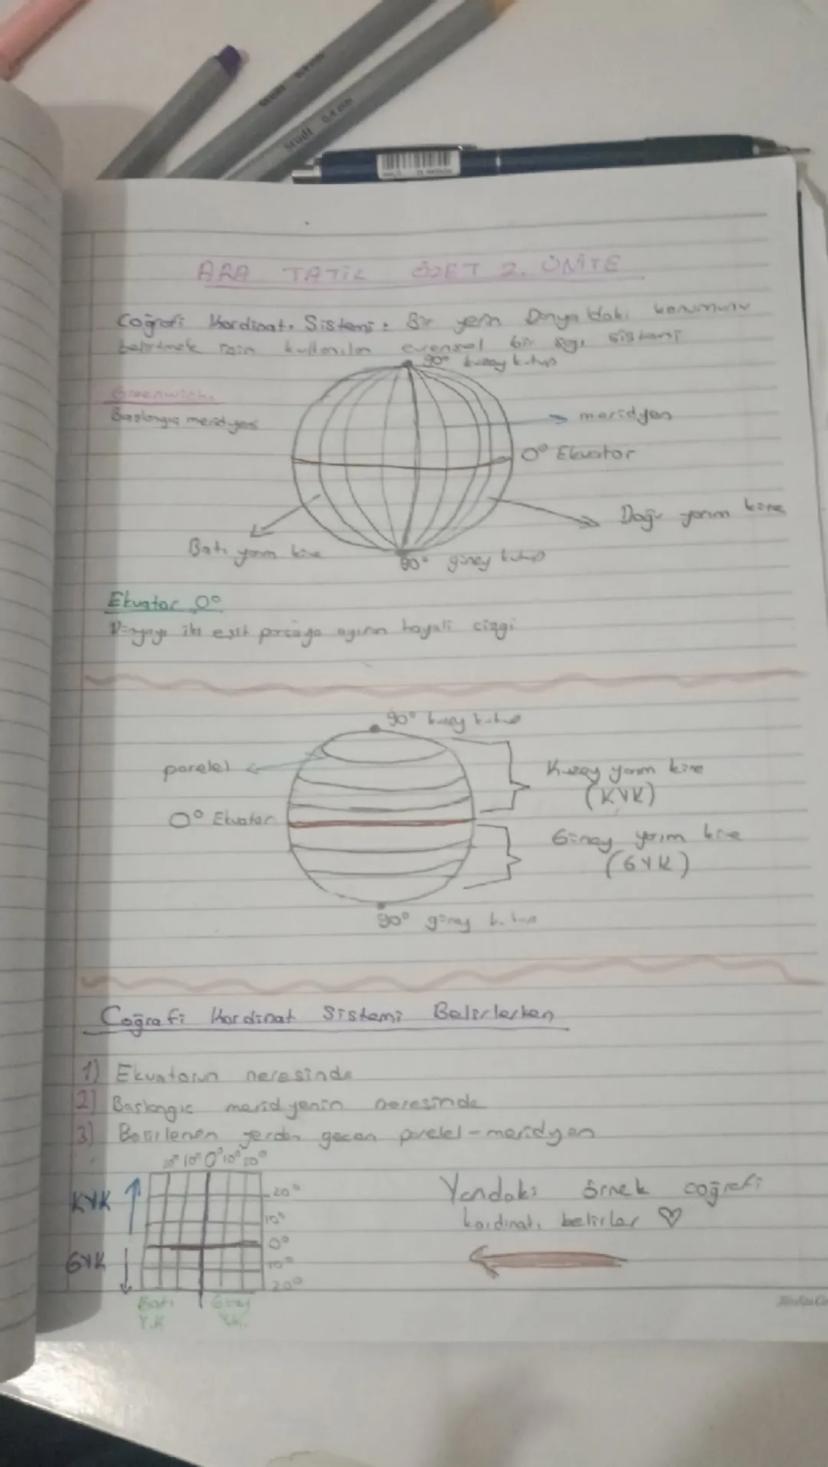 ARA TATİL ÖZET 2. ÜNİTE
Coğrafi Kordinat. Sistemi: Bir yerin Dünya'daki konumunu
belirtmek için kullanılan evrensel bir ızgı sistemi
90° kuzey kutup
Greenwich.
Başlangıç meridyeni
meridyen
0° Ekvator
Doğu yarım küre
Batı yarım küre
90° güney kutup
Ekvator 0°
Dünyayı iki eşit parçaya ayıran hayali çizgi
90° kuzey kutup
parelel
Kuzey yarım küre
(KYK)
0° Ekvator
Güney yarım küre
(GYK)
90° güney kutup
Coğrafi Kordinat Sistemi Belirlerken
1) Ekvatorun neresinde
2) Başlangıç meridyenin neresinde
3) Belirlenen yerden geçen parelel-meridyen
20° 10° 0° 10° 20°
KYK
20°
10°
0°
GYK
10°
20°
Batı Güney
Y.K Y.K.
Yandaki örnek coğrafi
kordinatı belirler ♡